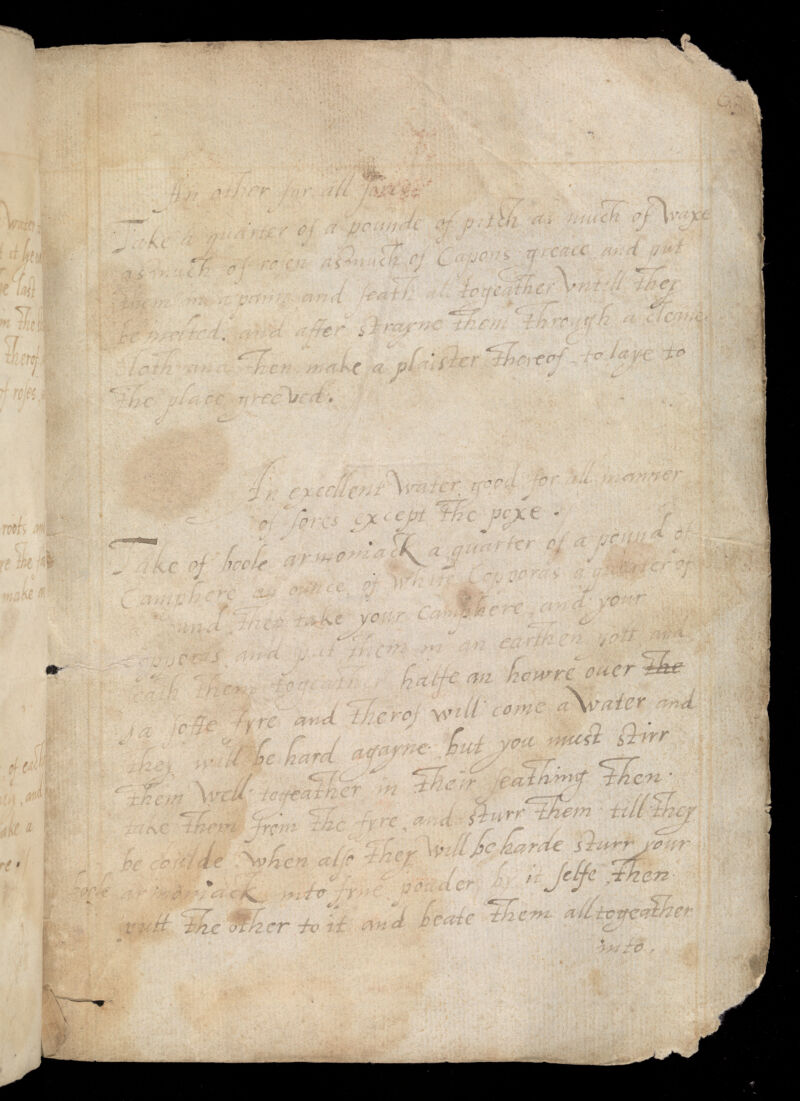 An other for all sores
Take a quarter of a pounde of pitch as much of Waxe
as much of rosen as much of Capons greace and put
them in a pann and seath all togeather Vntill they
be molted. and after strayne them through a cleane
cloth and then make a plaister thereof to laye to
the place greeved.
An excellent Water good for all manner
of sores except the poxe.
Take of boole armoniack a quarter of a pound of
Camphere an ounce, of white Copporas a quarter of
a pound then take your Camphere and your
Copporas and put them in an earthen pott and
seath them togeather halfe an howre over the
a softe fyre and therof will come a Water and
they will be hard agayne but you must stirr
them well togeather in their seathing then
take them from the fyre and sturr them till they
be coulde when also they will be harde sturr your
boole armoniack into fyne pouder by it selfe then
putt the other to it and beate them all togeather
into.
water
last
in the
therof
of roses
roots and
make
of each
and
take a